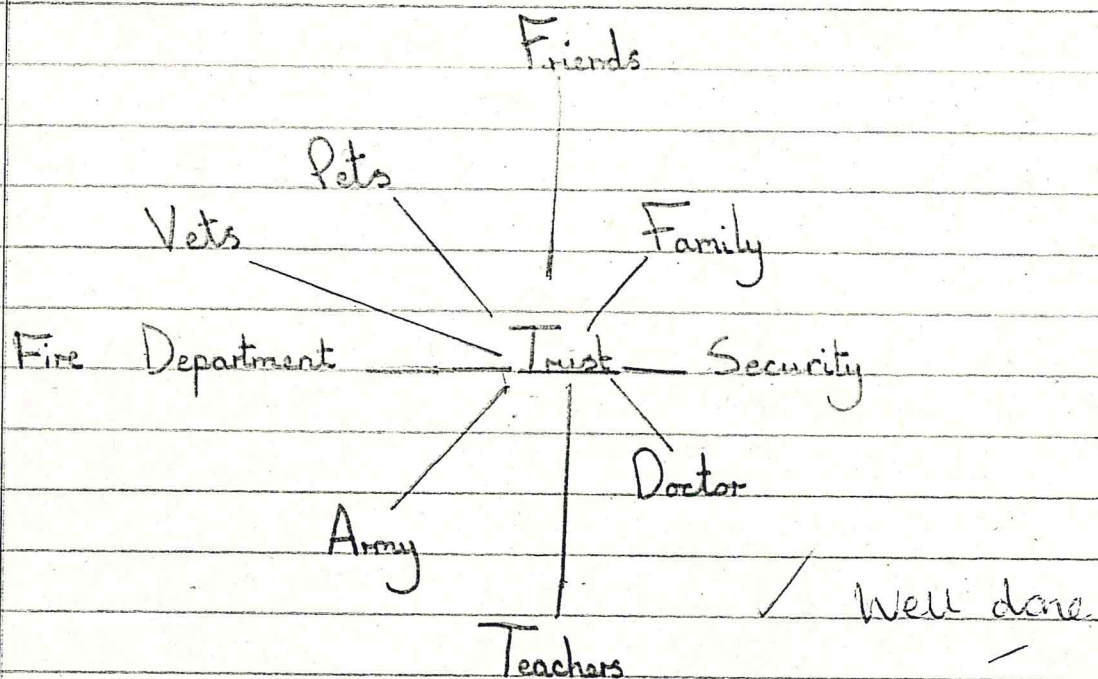 Friends
Pets
Vets
Family
Fire Department
Trust
Security
Doctor
Army
Well done
Teachers